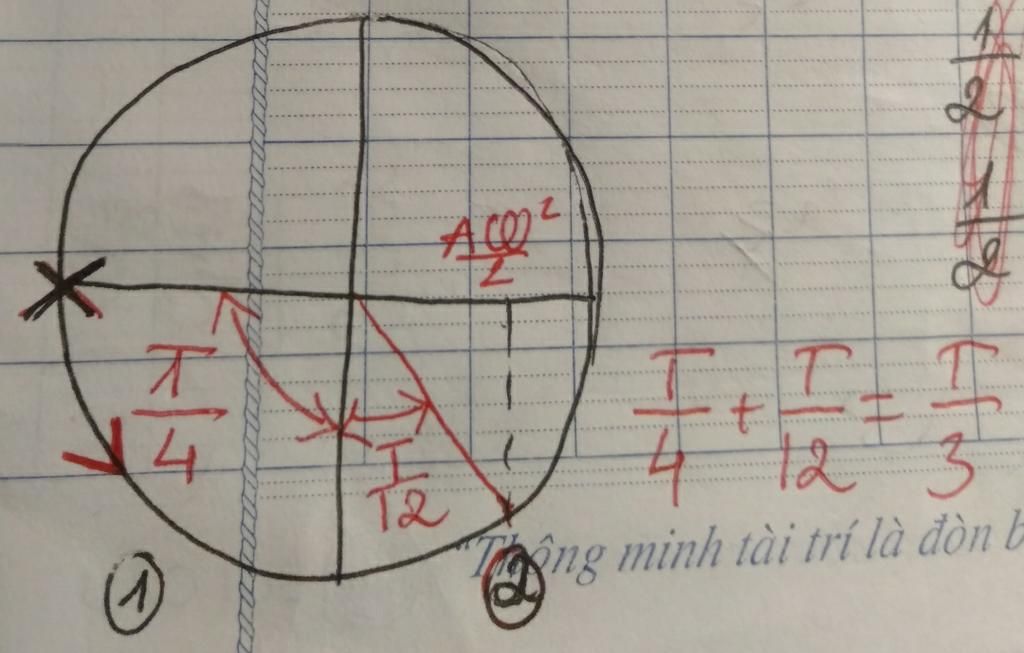 1/2
1/2
Aω²/2
T/4
T/12
T/4 + T/12 = T/3
"Thông minh tài trí là đòn b
1
2